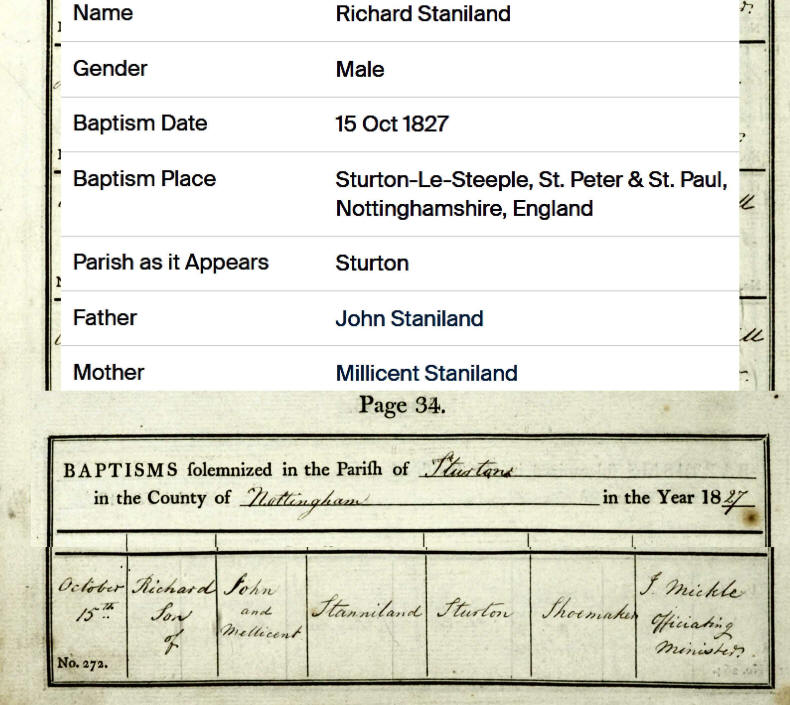 Name Richard Staniland
Gender Male
Baptism Date 15 Oct 1827
Baptism Place Sturton-Le-Steeple, St. Peter & St. Paul,
Nottinghamshire, England
Parish as it Appears Sturton
Father John Staniland
Mother Millicent Staniland
Page 34.
BAPTISMS ſolemnized in the Pariſh of Sturton
in the County of Nottingham in the Year 1827
October
15th
No. 272.
Richard
Son
of
John
and
Mellicent
Stanniland
Sturton
Shoemaker
J. Mickle
Officiating
Minister